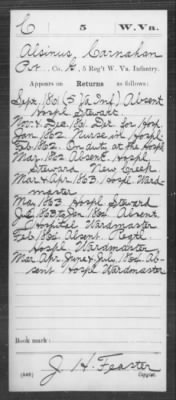 C 5 W. Va.
Alsinus, Carnahan
Pvt., Co. K, 5 Reg't W. Va. Infantry.
Appears on Returns as follows:
Sept. 1861 (5 Va Inf) Absent
Hospl Stewart.
Nov. & Dec. 1861 Det. for Hosp
Jan/1862 Nurse in Hospl
Feb/1862. On duty at the Hospl
Mar/1862 Absent. Hospl
Steward New Creek.
Mar & Apr/1863. Hospl Ward-
master
May/1863 Hospl Steward
Jul/1863 to Jan/1864. Absent.
Hospital Wardmaster
Feb/1864 Absent. Regtl
Hospl Wardmaster
Mar. Apr. June & July/1864. Ab-
sent. Hospl Wardmaster
Book mark:
J. H. Feaster
(546) Copyist.